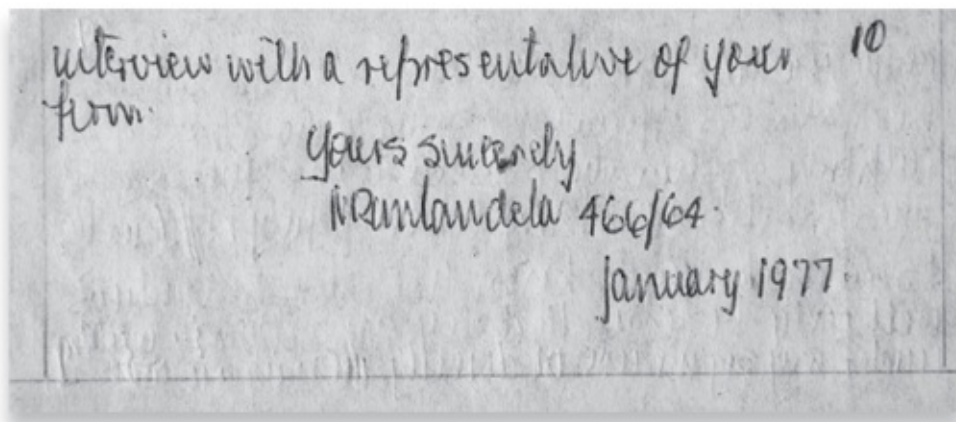 interview with a representative of your 10
firm.
Yours sincerely
NRMandela 466/64.
January 1977.